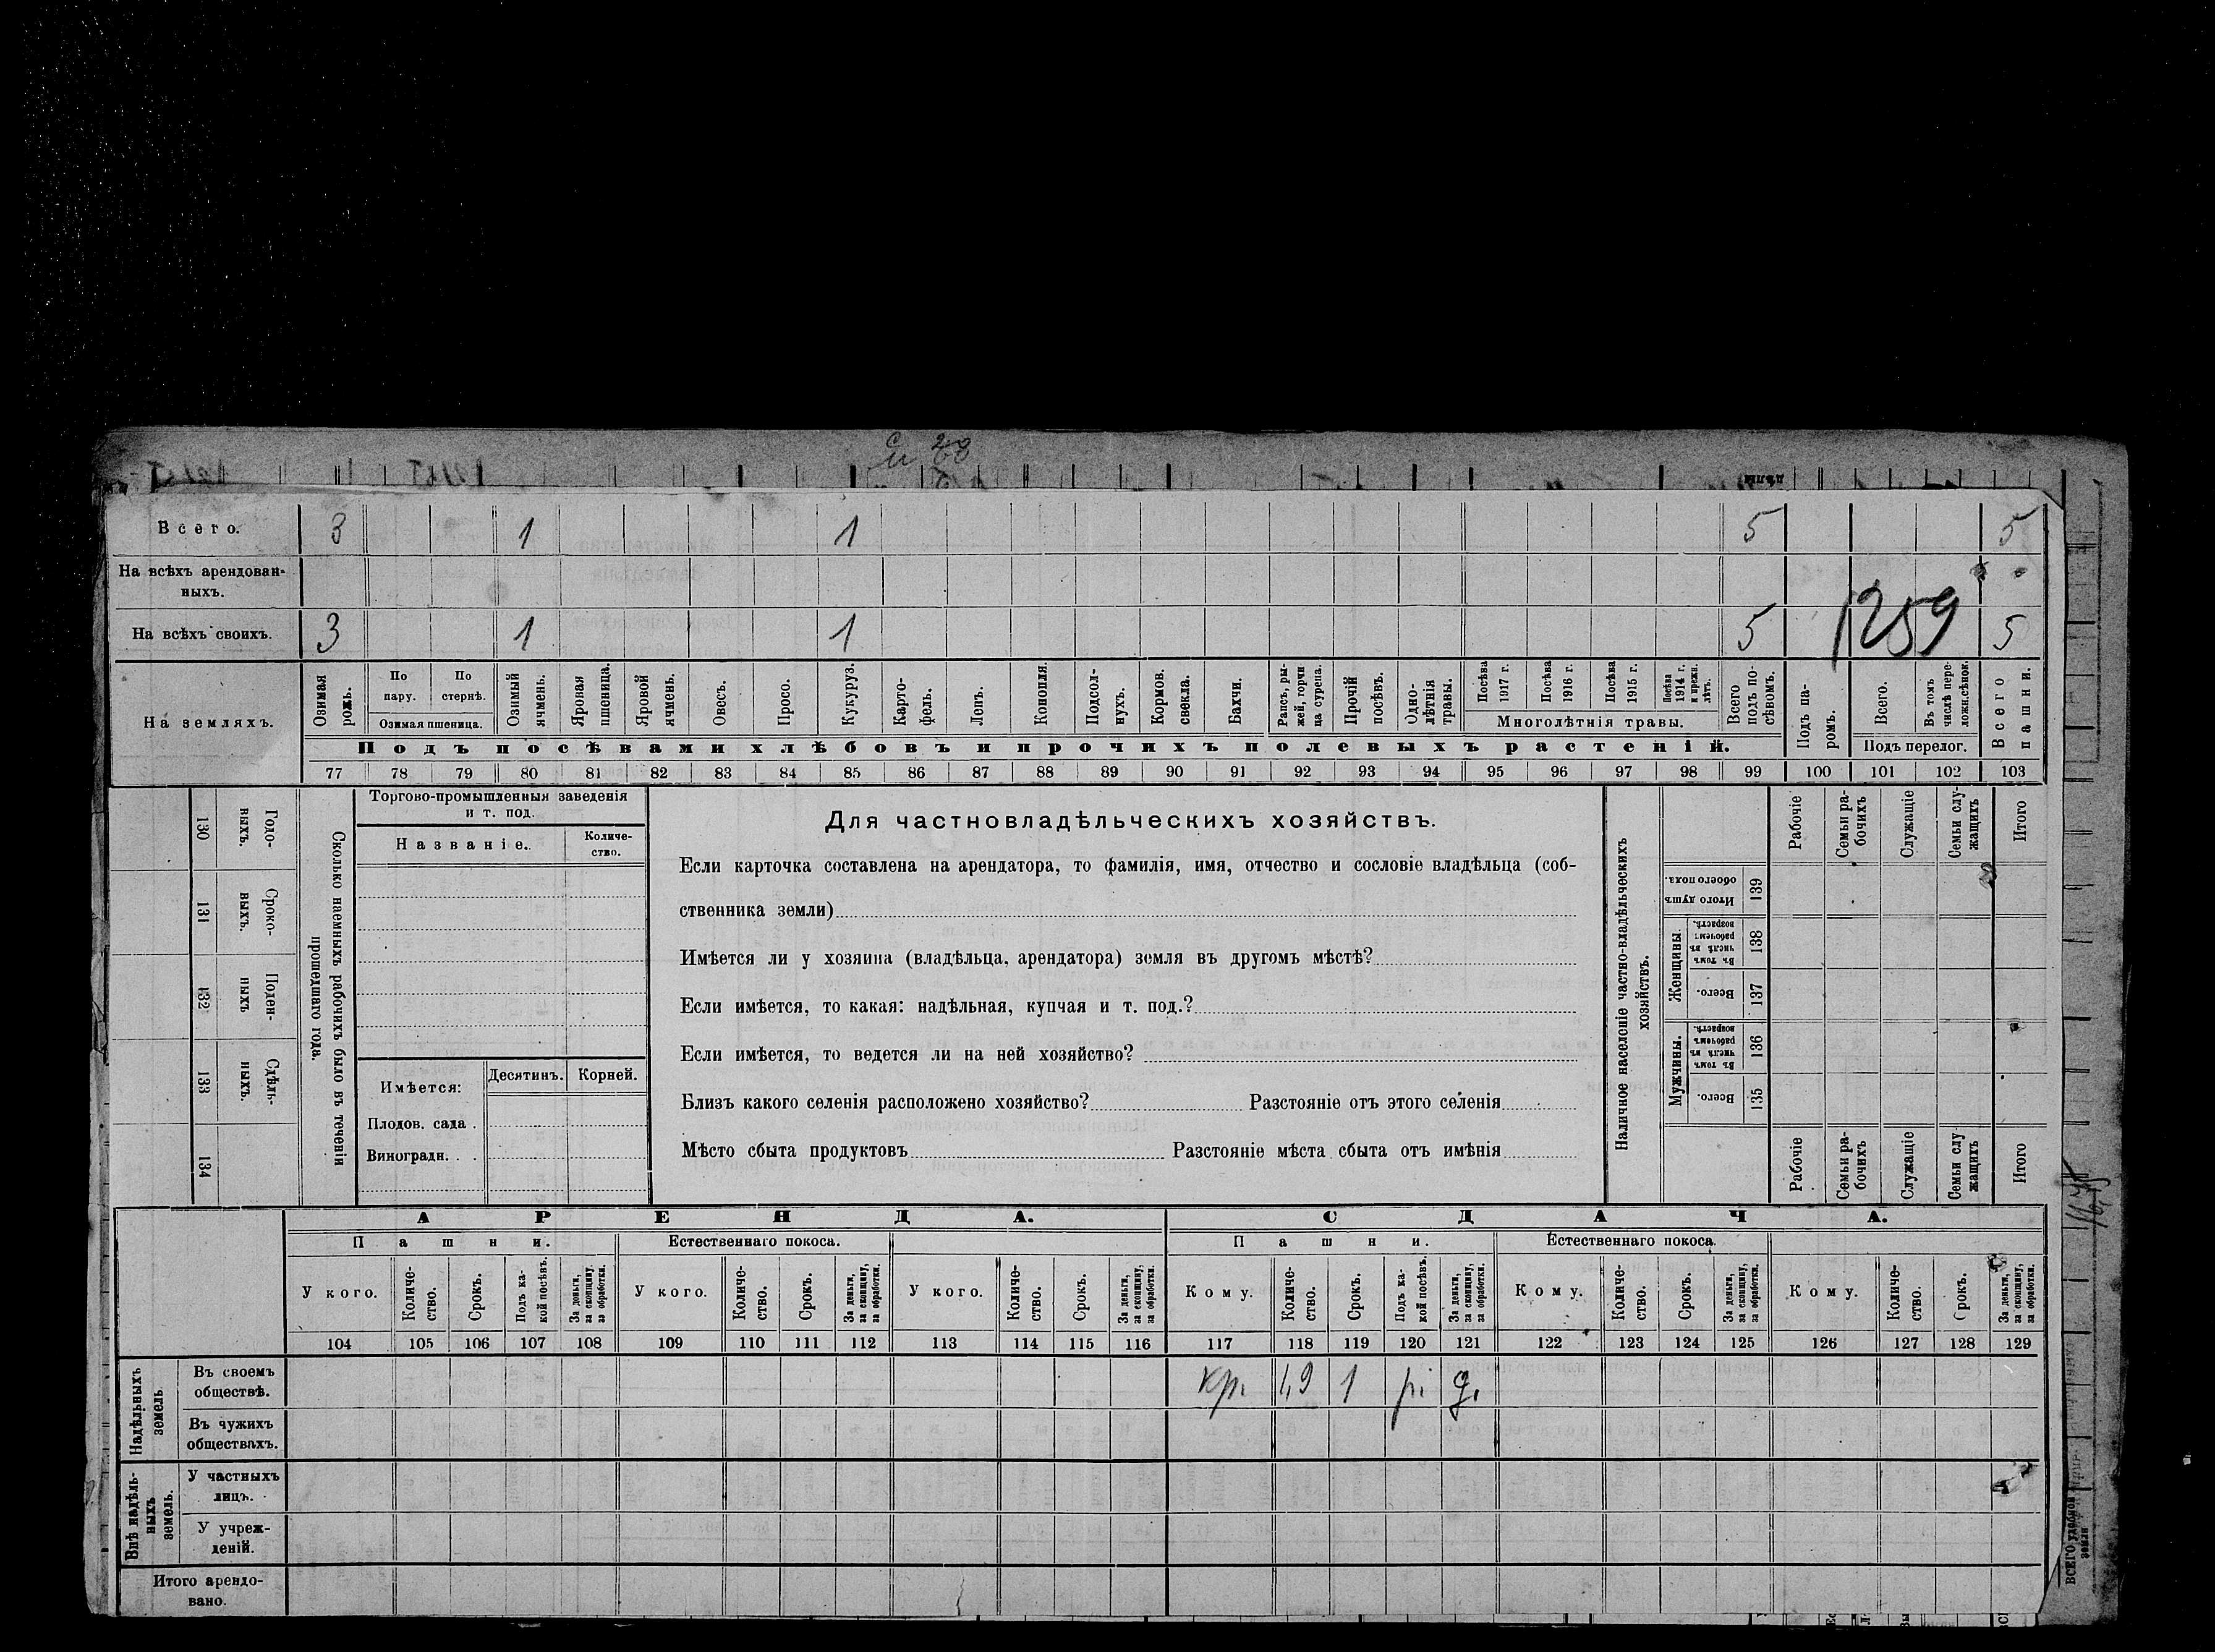 Всего. 3 1 1 5 5
На всѣхъ арендован-
ныхъ.
1259
На всѣхъ своихъ. 3 1 1 5 5
На земляхъ.
Озимая рожь.
По пару.
По стернѣ.
Озимая пшеница.
Озимый ячмень.
Яровая пшеница.
Яровой ячмень.
Овесъ.
Просо.
Кукуруз.
Карто-
фель.
Ленъ.
Конопля.
Подсол-
нухъ.
Кормов. свекла.
Бахчи.
Рапсъ, ры-
жей, горчи
ца сурепа.
Прочій посѣвъ.
Одно-
лѣтнія
травы.
Посѣва 1917 г.
Посѣва 1916 г.
Посѣва 1915 г.
Посѣва 1914 г. и прежн. лѣтъ.
Многолѣтнія травы.
Всего подъ по-
сѣвомъ.
Подъ па-
ромъ.
Всего.
Въ томъ числѣ пере-
ложн.сѣнок.
Подъ перелог.
Всего пашни.
Подъ посѣвами хлѣбовъ и прочихъ полевыхъ растеній.
77 78 79 80 81 82 83 84 85 86 87 88 89 90 91 92 93 94 95 96 97 98 99 100 101 102 103
Годо-
ныхъ.
130
Сроко-
ныхъ.
131
Поден-
ныхъ
132
Сдѣль-
ныхъ.
133
134
Сколько наемныхъ рабочихъ было въ теченіи
прошедшаго года.
Торгово-промышленныя заведенія
и т. под.
Названіе.
Количе-
ство.
Имѣется: Десятинъ. Корней.
Плодов. сада .
Виноградн. .
Для частновладѣльческихъ хозяйствъ.
Если карточка составлена на арендатора, то фамилія, имя, отчество и сословіе владѣльца (соб-
ственника земли)
Имѣется ли у хозяина (владѣльца, арендатора) земля въ другомъ мѣстѣ?
Если имѣется, то какая: надѣльная, купчая и т. под.?
Если имѣется, то ведется ли на ней хозяйство?
Близъ какого селенія расположено хозяйство? Разстояніе отъ этого селенія
Мѣсто сбыта продуктовъ Разстояніе мѣста сбыта отъ имѣнія
Наличное населеніе частно-владѣльческихъ
хозяйствъ.
Рабочіе
Семьи ра-
бочихъ
Служащіе
Семьи слу-
жащихъ
Итого
Итого душъ обоего пола.
139
Женщины.
Въ томъ числѣ въ рабочемъ возрастѣ.
138
Всего.
137
Мужчины.
Въ томъ числѣ въ рабочемъ возрастѣ.
136
Всего.
135
Рабочіе
Семьи ра-
бочихъ
Служащіе
Семьи слу
жащихъ
Итого
АРЕНДА. СДАЧА.
Пашни. Естественнаго покоса. Пашни. Естественнаго покоса.
У кого. Количе-
ство. Срокъ. Подъ ка-
кой посѣвъ. За деньги, за скопщину, за обработки.
У кого. Количе-
ство. Срокъ. За деньги, за скопщину, за обработки.
У кого. Количе-
ство. Срокъ. За деньги, за скопщину, за обработки.
Кому. Количе-
ство. Срокъ. Подъ ка-
кой посѣвъ. За деньги, за скопщину, за обработки.
Кому. Количе-
ство. Срокъ. За деньги, за скопщину, за обработки.
Кому. Количе-
ство. Срокъ. За деньги, за скопщину, за обработки.
104 105 106 107 108 109 110 111 112 113 114 115 116 117 118 119 120 121 122 123 124 125 126 127 128 129
Надѣльныхъ
земель
Въ своемъ
обществѣ. кр. 1,9 1 р. д.
Въ чужихъ
обществахъ.
Внѣ надѣль-
ныхъ
земель.
У частныхъ
лицъ.
У учреж-
деній.
Итого арендо-
вано.
ВСЕГО удобной
земли